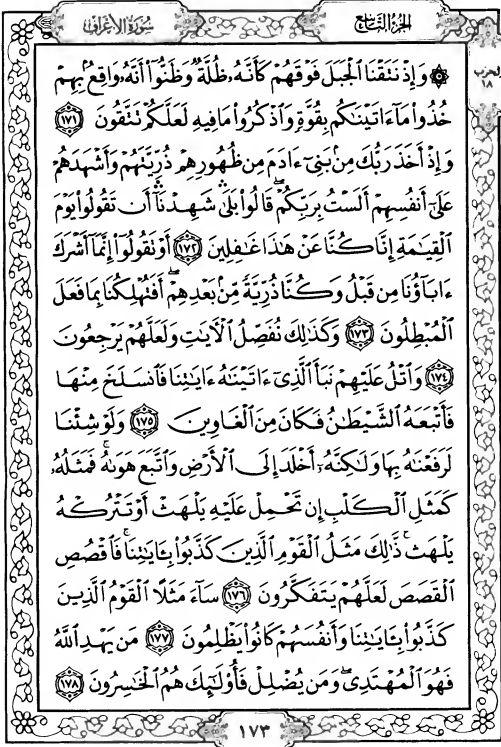 الجزء التاسع
سورة الأعراف
حزب
١٨
۞ وَإِذْ نَتَقْنَا ٱلْجَبَلَ فَوْقَهُمْ كَأَنَّهُۥ ظُلَّةٌ وَظَنُّوٓا۟ أَنَّهُۥ وَاقِعٌۢ بِهِمْ
خُذُوا۟ مَآ ءَاتَيْنَٰكُم بِقُوَّةٍ وَٱذْكُرُوا۟ مَا فِيهِ لَعَلَّكُمْ تَتَّقُونَ ١٧١
وَإِذْ أَخَذَ رَبُّكَ مِنۢ بَنِىٓ ءَادَمَ مِن ظُهُورِهِمْ ذُرِّيَّتَهُمْ وَأَشْهَدَهُمْ
عَلَىٰٓ أَنفُسِهِمْ أَلَسْتُ بِرَبِّكُمْ ۖ قَالُوا۟ بَلَىٰ ۛ شَهِدْنَآ ۛ أَن تَقُولُوا۟ يَوْمَ
ٱلْقِيَٰمَةِ إِنَّا كُنَّا عَنْ هَٰذَا غَٰفِلِينَ ١٧٢ أَوْ تَقُولُوٓا۟ إِنَّمَآ أَشْرَكَ
ءَابَآؤُنَا مِن قَبْلُ وَكُنَّا ذُرِّيَّةً مِّنۢ بَعْدِهِمْ ۖ أَفَتُهْلِكُنَا بِمَا فَعَلَ
ٱلْمُبْطِلُونَ ١٧٣ وَكَذَٰلِكَ نُفَصِّلُ ٱلْءَايَٰتِ وَلَعَلَّهُمْ يَرْجِعُونَ
١٧٤ وَٱتْلُ عَلَيْهِمْ نَبَأَ ٱلَّذِىٓ ءَاتَيْنَٰهُ ءَايَٰتِنَا فَٱنسَلَخَ مِنْهَا
فَأَتْبَعَهُ ٱلشَّيْطَٰنُ فَكَانَ مِنَ ٱلْغَاوِينَ ١٧٥ وَلَوْ شِئْنَا
لَرَفَعْنَٰهُ بِهَا وَلَٰكِنَّهُۥٓ أَخْلَدَ إِلَى ٱلْأَرْضِ وَٱتَّبَعَ هَوَىٰهُ ۚ فَمَثَلُهُۥ
كَمَثَلِ ٱلْكَلْبِ إِن تَحْمِلْ عَلَيْهِ يَلْهَثْ أَوْ تَتْرُكْهُ
يَلْهَث ۚ ذَّٰلِكَ مَثَلُ ٱلْقَوْمِ ٱلَّذِينَ كَذَّبُوا۟ بِـَٔايَٰتِنَا ۚ فَٱقْصُصِ
ٱلْقَصَصَ لَعَلَّهُمْ يَتَفَكَّرُونَ ١٧٦ سَآءَ مَثَلًا ٱلْقَوْمُ ٱلَّذِينَ
كَذَّبُوا۟ بِـَٔايَٰتِنَا وَأَنفُسَهُمْ كَانُوا۟ يَظْلِمُونَ ١٧٧ مَن يَهْدِ ٱللَّهُ
فَهُوَ ٱلْمُهْتَدِى ۖ وَمَن يُضْلِلْ فَأُو۟لَٰٓئِكَ هُمُ ٱلْخَٰسِرُونَ ١٧٨
١٧٣